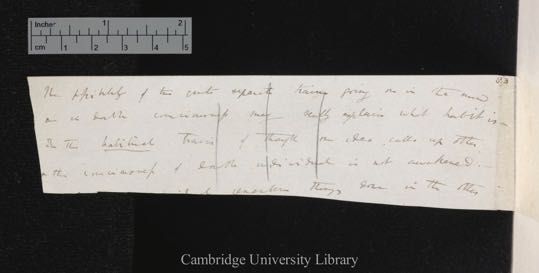 Inches 1 2
cm 1 2 3 4 5
The possibility of two quite separate trains going on in the mind
as in double consciousness may really explain what habit is –
In the habitual train of thought one idea calls up other
& the consciousness of double individual is not awakened. –
things done in the other
Cambridge University Library